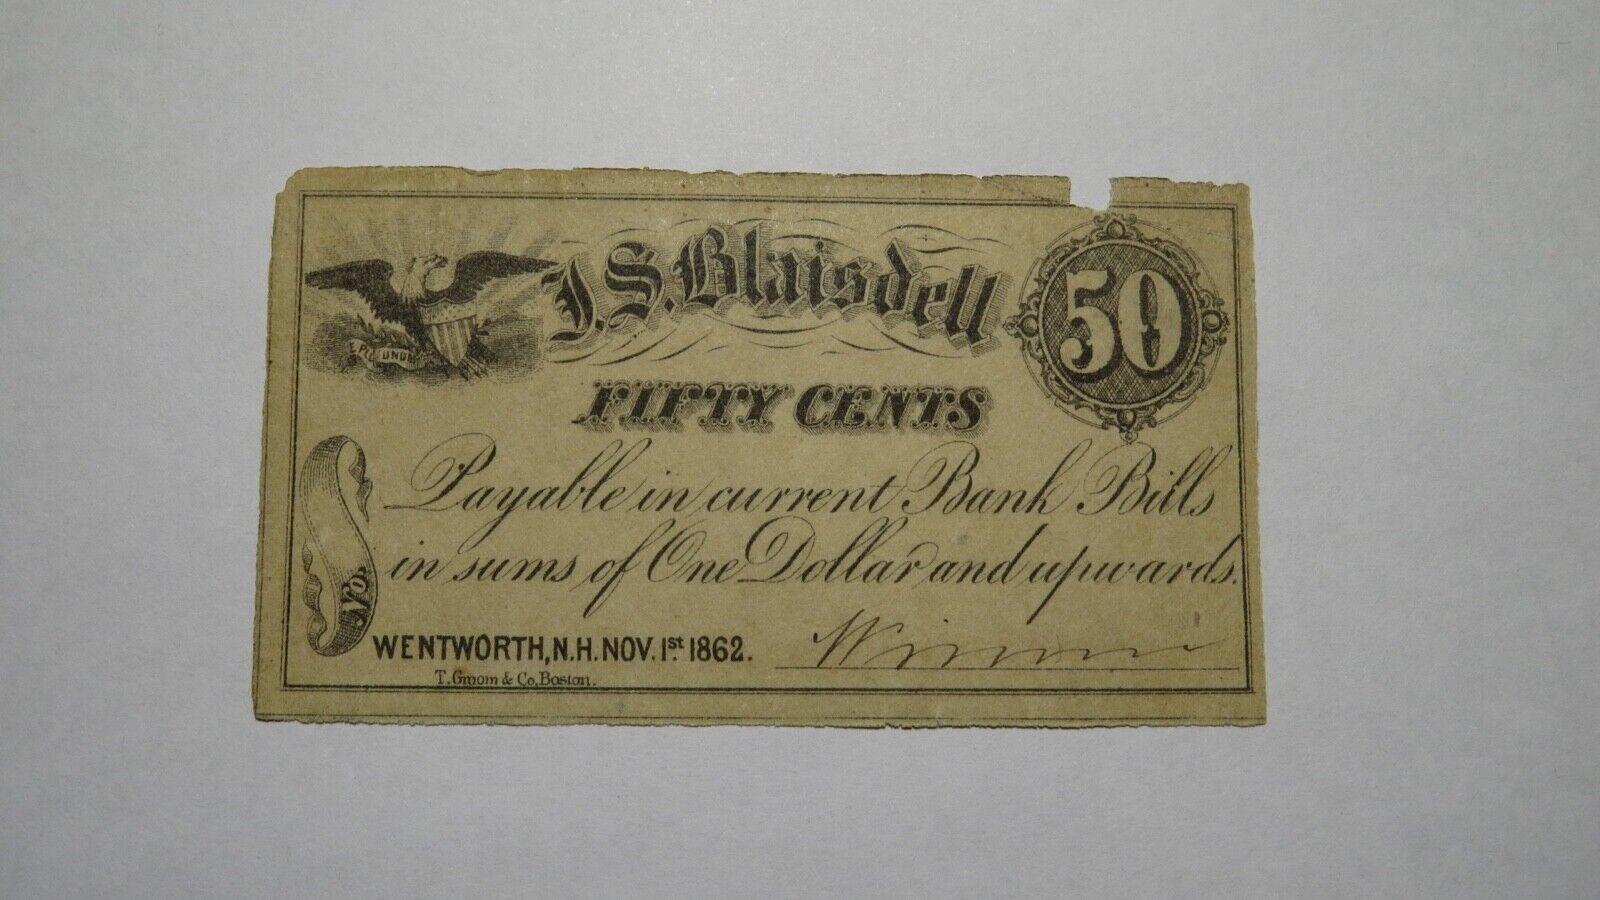 J.S. Blaisdell
50
E PLU UNUM
FIFTY CENTS
Payable in current Bank Bills
in sums of One Dollar and upwards.
No.
WENTWORTH, N.H. NOV. 1st 1862.
T. Groom & Co, Boston.